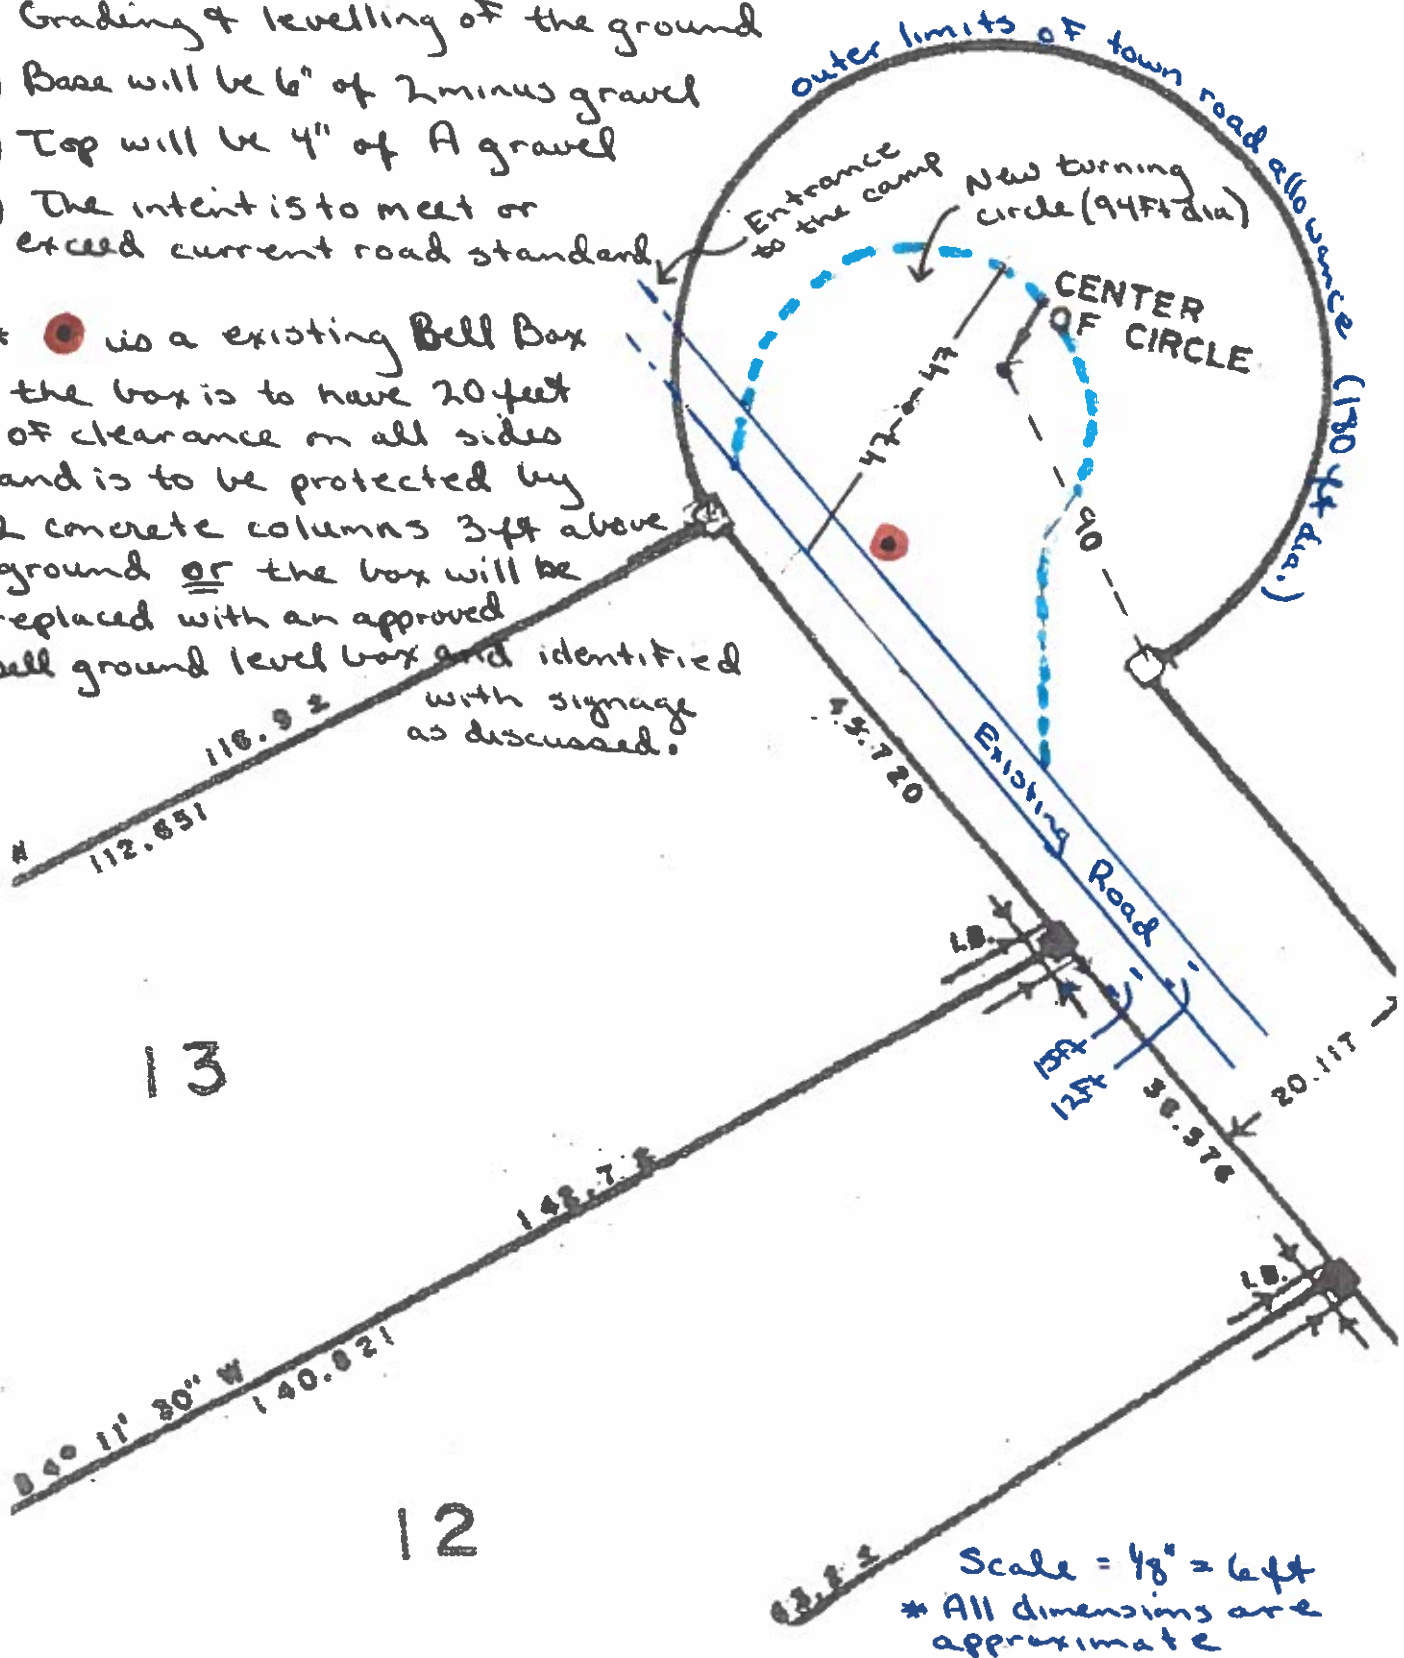 Grading & levelling of the ground
) Base will be 6" of 2 minus gravel
) Top will be 4" of A gravel
) The intent is to meet or
exceed current road standard
* is a existing Bell Box
the box is to have 20 feet
of clearance on all sides
and is to be protected by
2 concrete columns 3ft above
ground or the box will be
replaced with an approved
ell ground level box and identified
with signage
as discussed.
outer limits of town road allowance (180 ft dia.)
Entrance
to the camp
New turning
circle (94Ft dia)
CENTER
OF CIRCLE
47-0-47
90
118.9 ±
112.651
N
43.720
Existing Road
I.B.
15ft
12ft
38.576
20.117
13
84° 11' 30" W
140.821
I.B.
12
Scale = 1/8" = 6ft
* All dimensions are
approximate